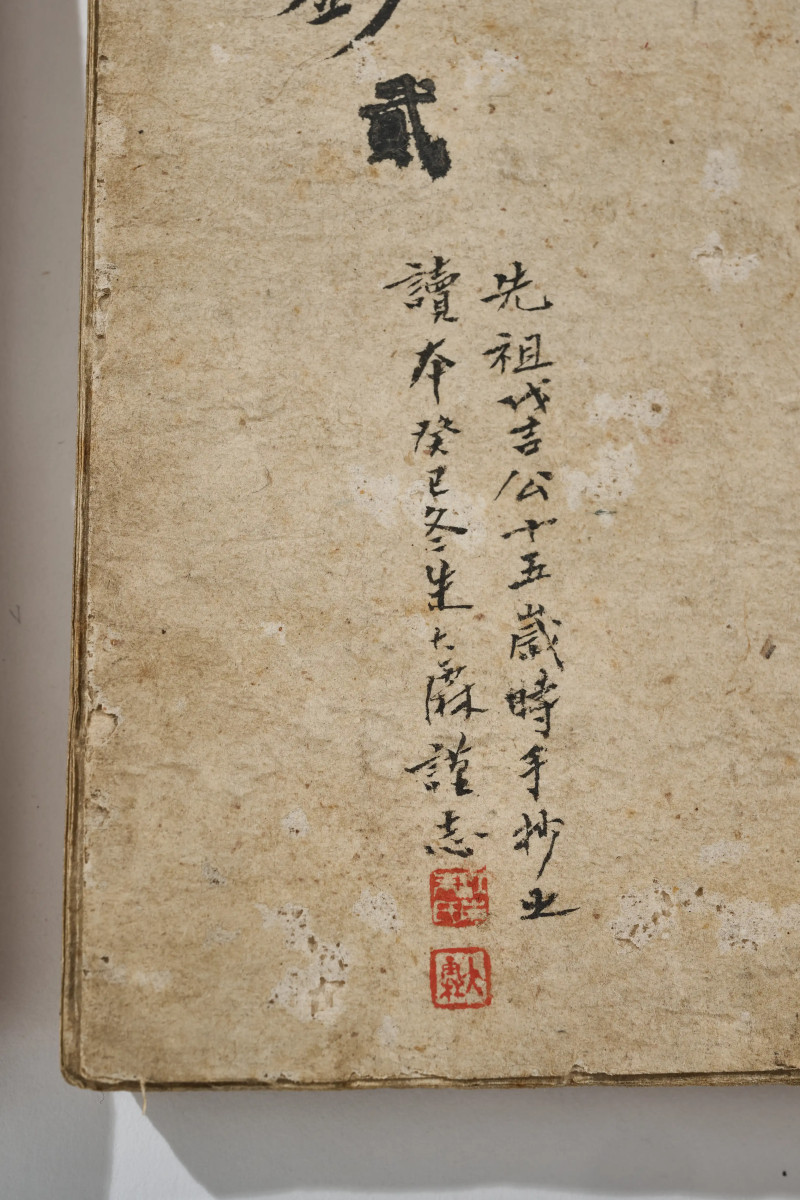 貳
先祖吉公十五歲時手抄之
讀本癸巳冬朱大謹志